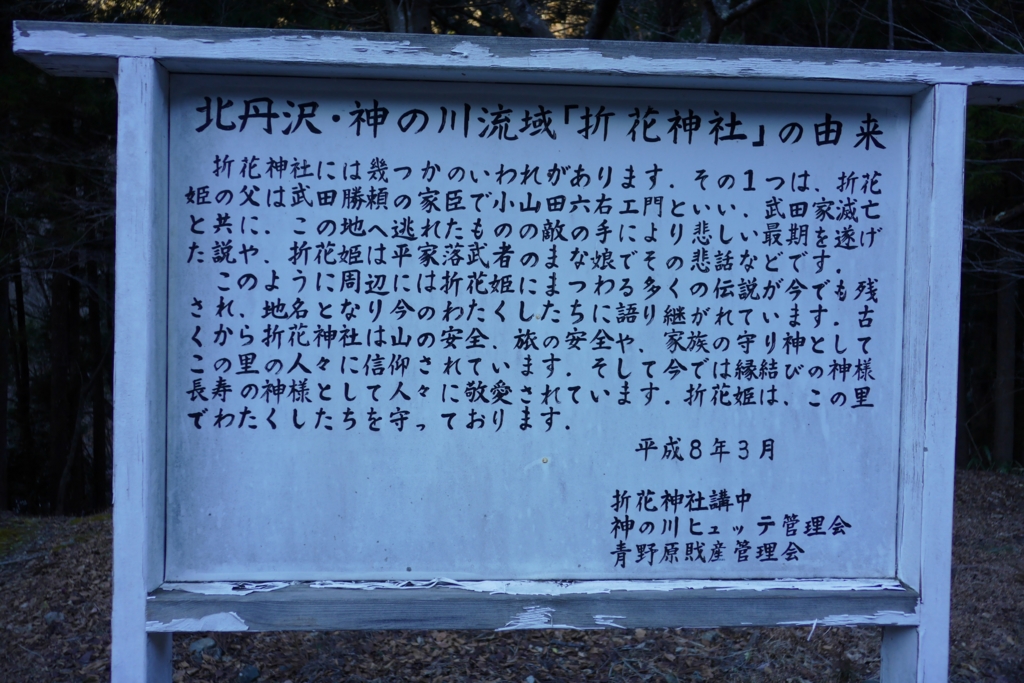 北丹沢・神の川流域「折花神社」の由来
折花神社には幾つかのいわれがあります．その１つは、折花
姫の父は武田勝頼の家臣で小山田六右エ門といい、武田家滅亡
と共に、この地へ逃れたものの敵の手により悲しい最期を遂げ
た説や、折花姫は平家落武者のまな娘でその悲話などです．
このように周辺には折花姫にまつわる多くの伝説が今でも残
され、地名となり今のわたくしたちに語り継がれています．古
くから折花神社は山の安全、旅の安全や、家族の守り神として
この里の人々に信仰されています．そして今では縁結びの神様
長寿の神様として人々に敬愛されています．折花姫は、この里
でわたくしたちを守っております．
平成８年３月
折花神社講中
神の川ヒュッテ管理会
青野原財産管理会